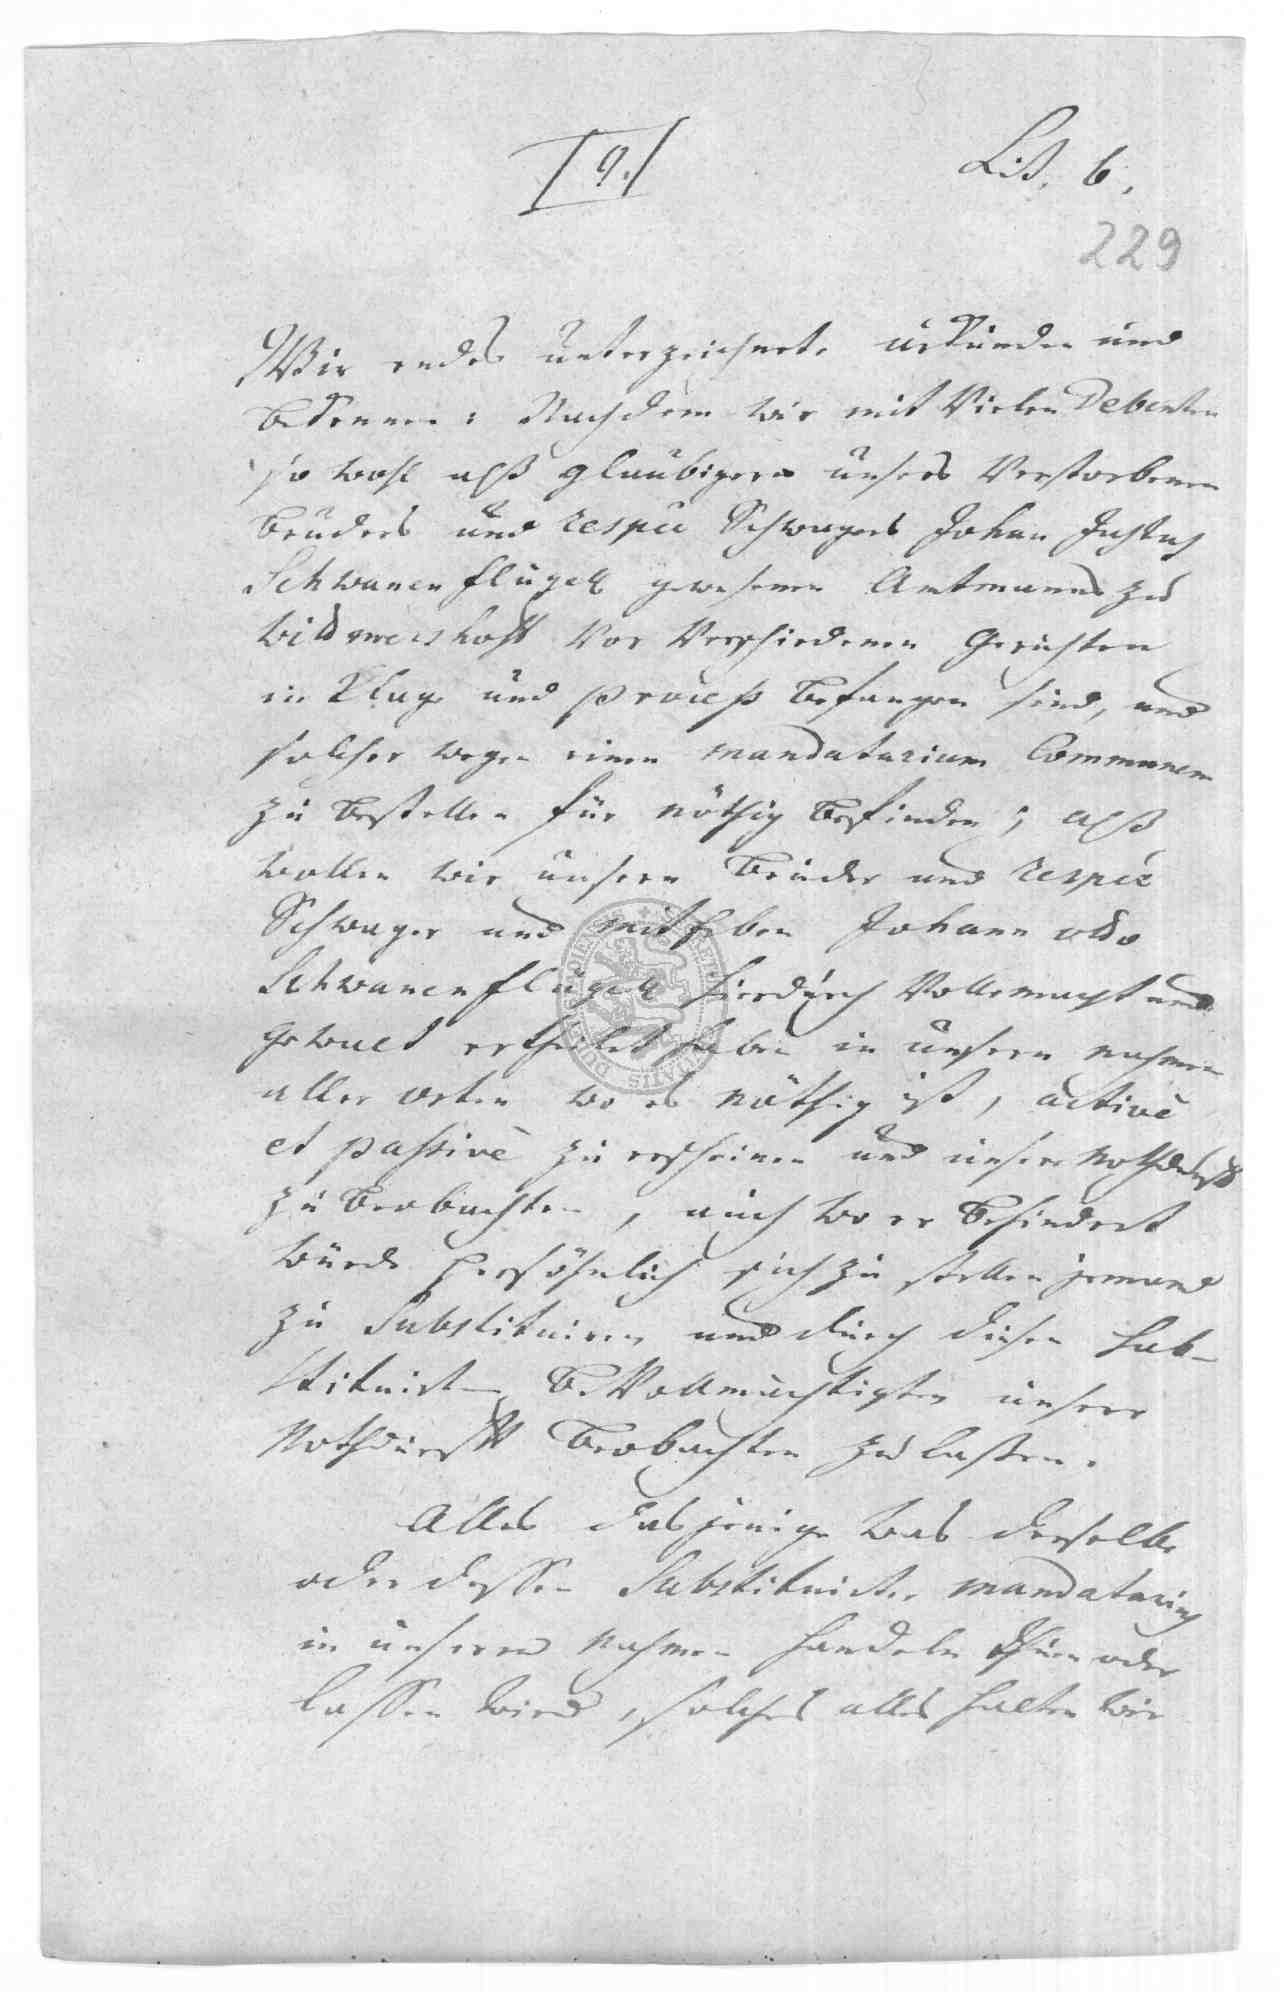 [9.]
Lit. b.
229
Wir endes unterzeichnete urkunden und
bekennen: Nachdem wir mit Vielen Debenten
so wohl alß glaubigern unsers Verstorbenen
bruders und respee Schwagers Johan Justus
Schwanenflügell gewesenen Amtmanns zu
Vor Verschiedenen Gerichten
in Klag und Process befangen sind, und
solcher wegen einen mandatarium Communem
zu bestellen für nöthig befinden; alß
wollen wir unsern bruder und respee
Schwager und mit Erben Johann Otto
Schwanenflügell hierdurch Vollemacht und
gewalt ertheilet haben in unsern nahmen
aller orten wo es nöthig ist, activè
et passivè zu erscheinen und unsere nothdurfft
zu beobachten, auch wo er behindert
würde persöhnlich sich zu stellen jemand
zu Substituiren und durch diesen sub-
stituirten beVollmächtigten unsere
Nothdurfft beobachten zu lassen.
Alles dasjenige was derselbe
oder dessen Substituirter mandatarius
in unseren nahmen handeln thun oder
lassen wird, solches alles halten wir